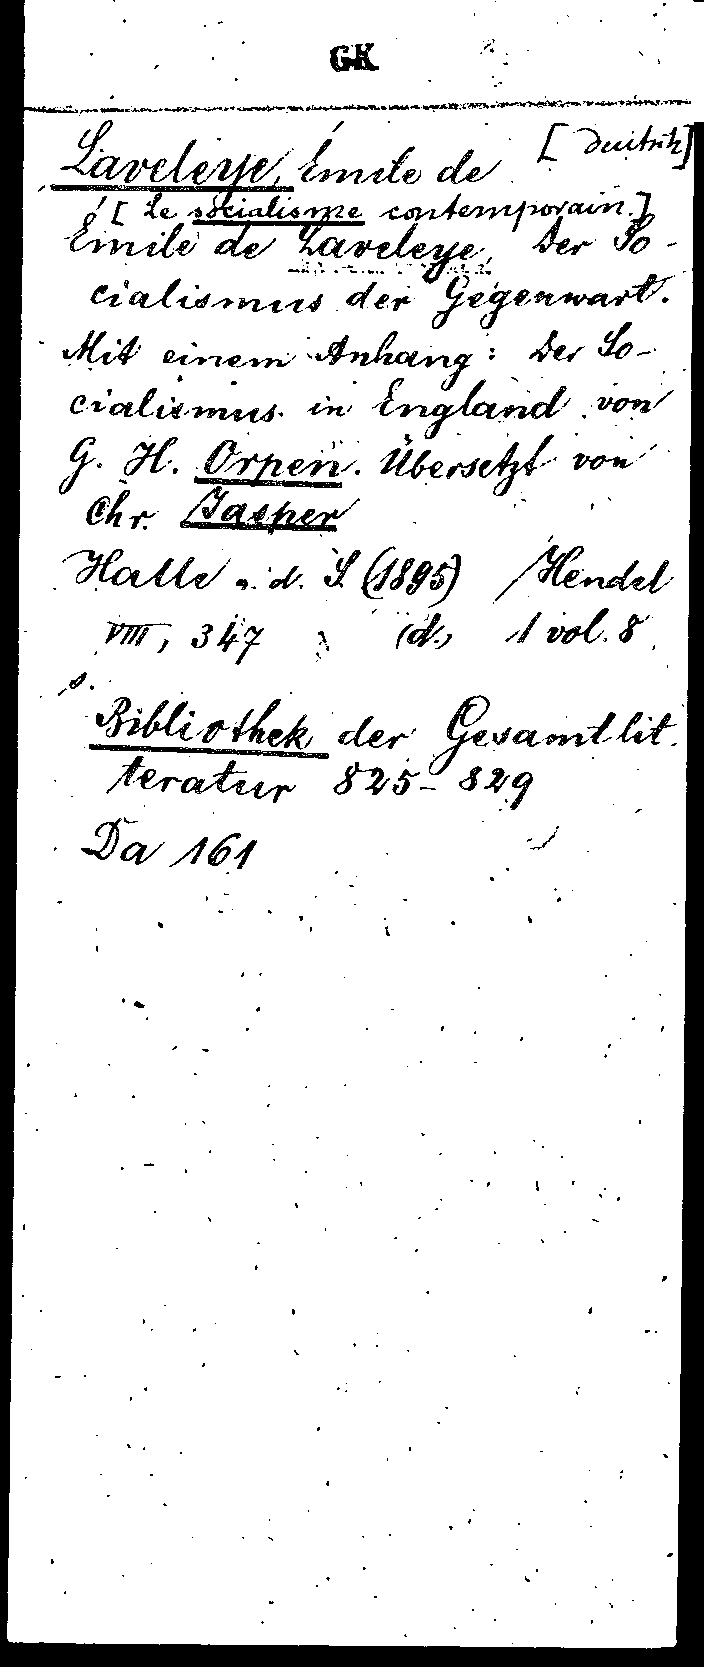 GK
Laveleye, Émile de [deutsch]
[Le socialisme contemporain.]
Émile de Laveleye, Der So-
cialismus der Gegenwart.
Mit einem Anhang: Der So-
cialismus in England von
G. H. Orpen. Übersetzt von
Chr. Jasper
Halle a. d. S. (1895) Hendel
VIII, 347 (d.) 1 vol. 8
s.
Bibliothek der Gesamtlit.
teratur 825-829
Da 161